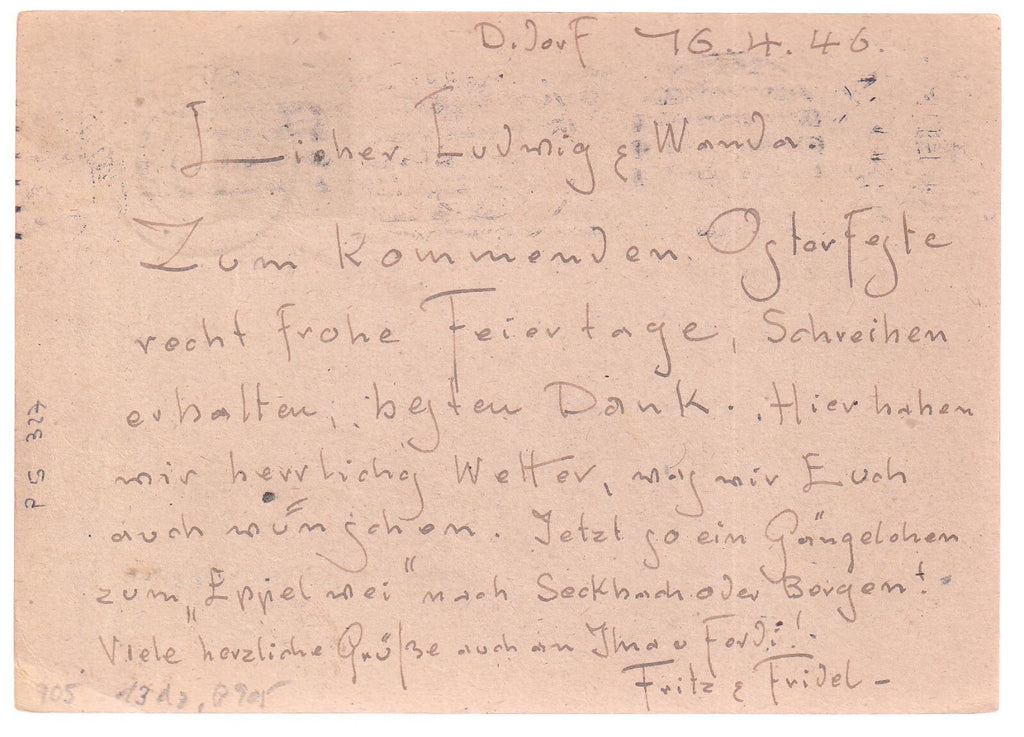 D.dorf 16.4.46.
Lieber Ludwig & Wanda.
Zum kommenden Osterfeste
recht frohe Feiertage, Schreiben
erhalten, besten Dank. Hier haben
wir herrlichs Wetter, was wir Euch
auch wünschen. Jetzt so ein Gängelchen
zum „Eppelwei" nach Seckbach oder Bergen!
Viele herzliche Grüße auch an Ilma u Ferdi!
Fritz & Fridel -
PS 327
905 13 da, P 905